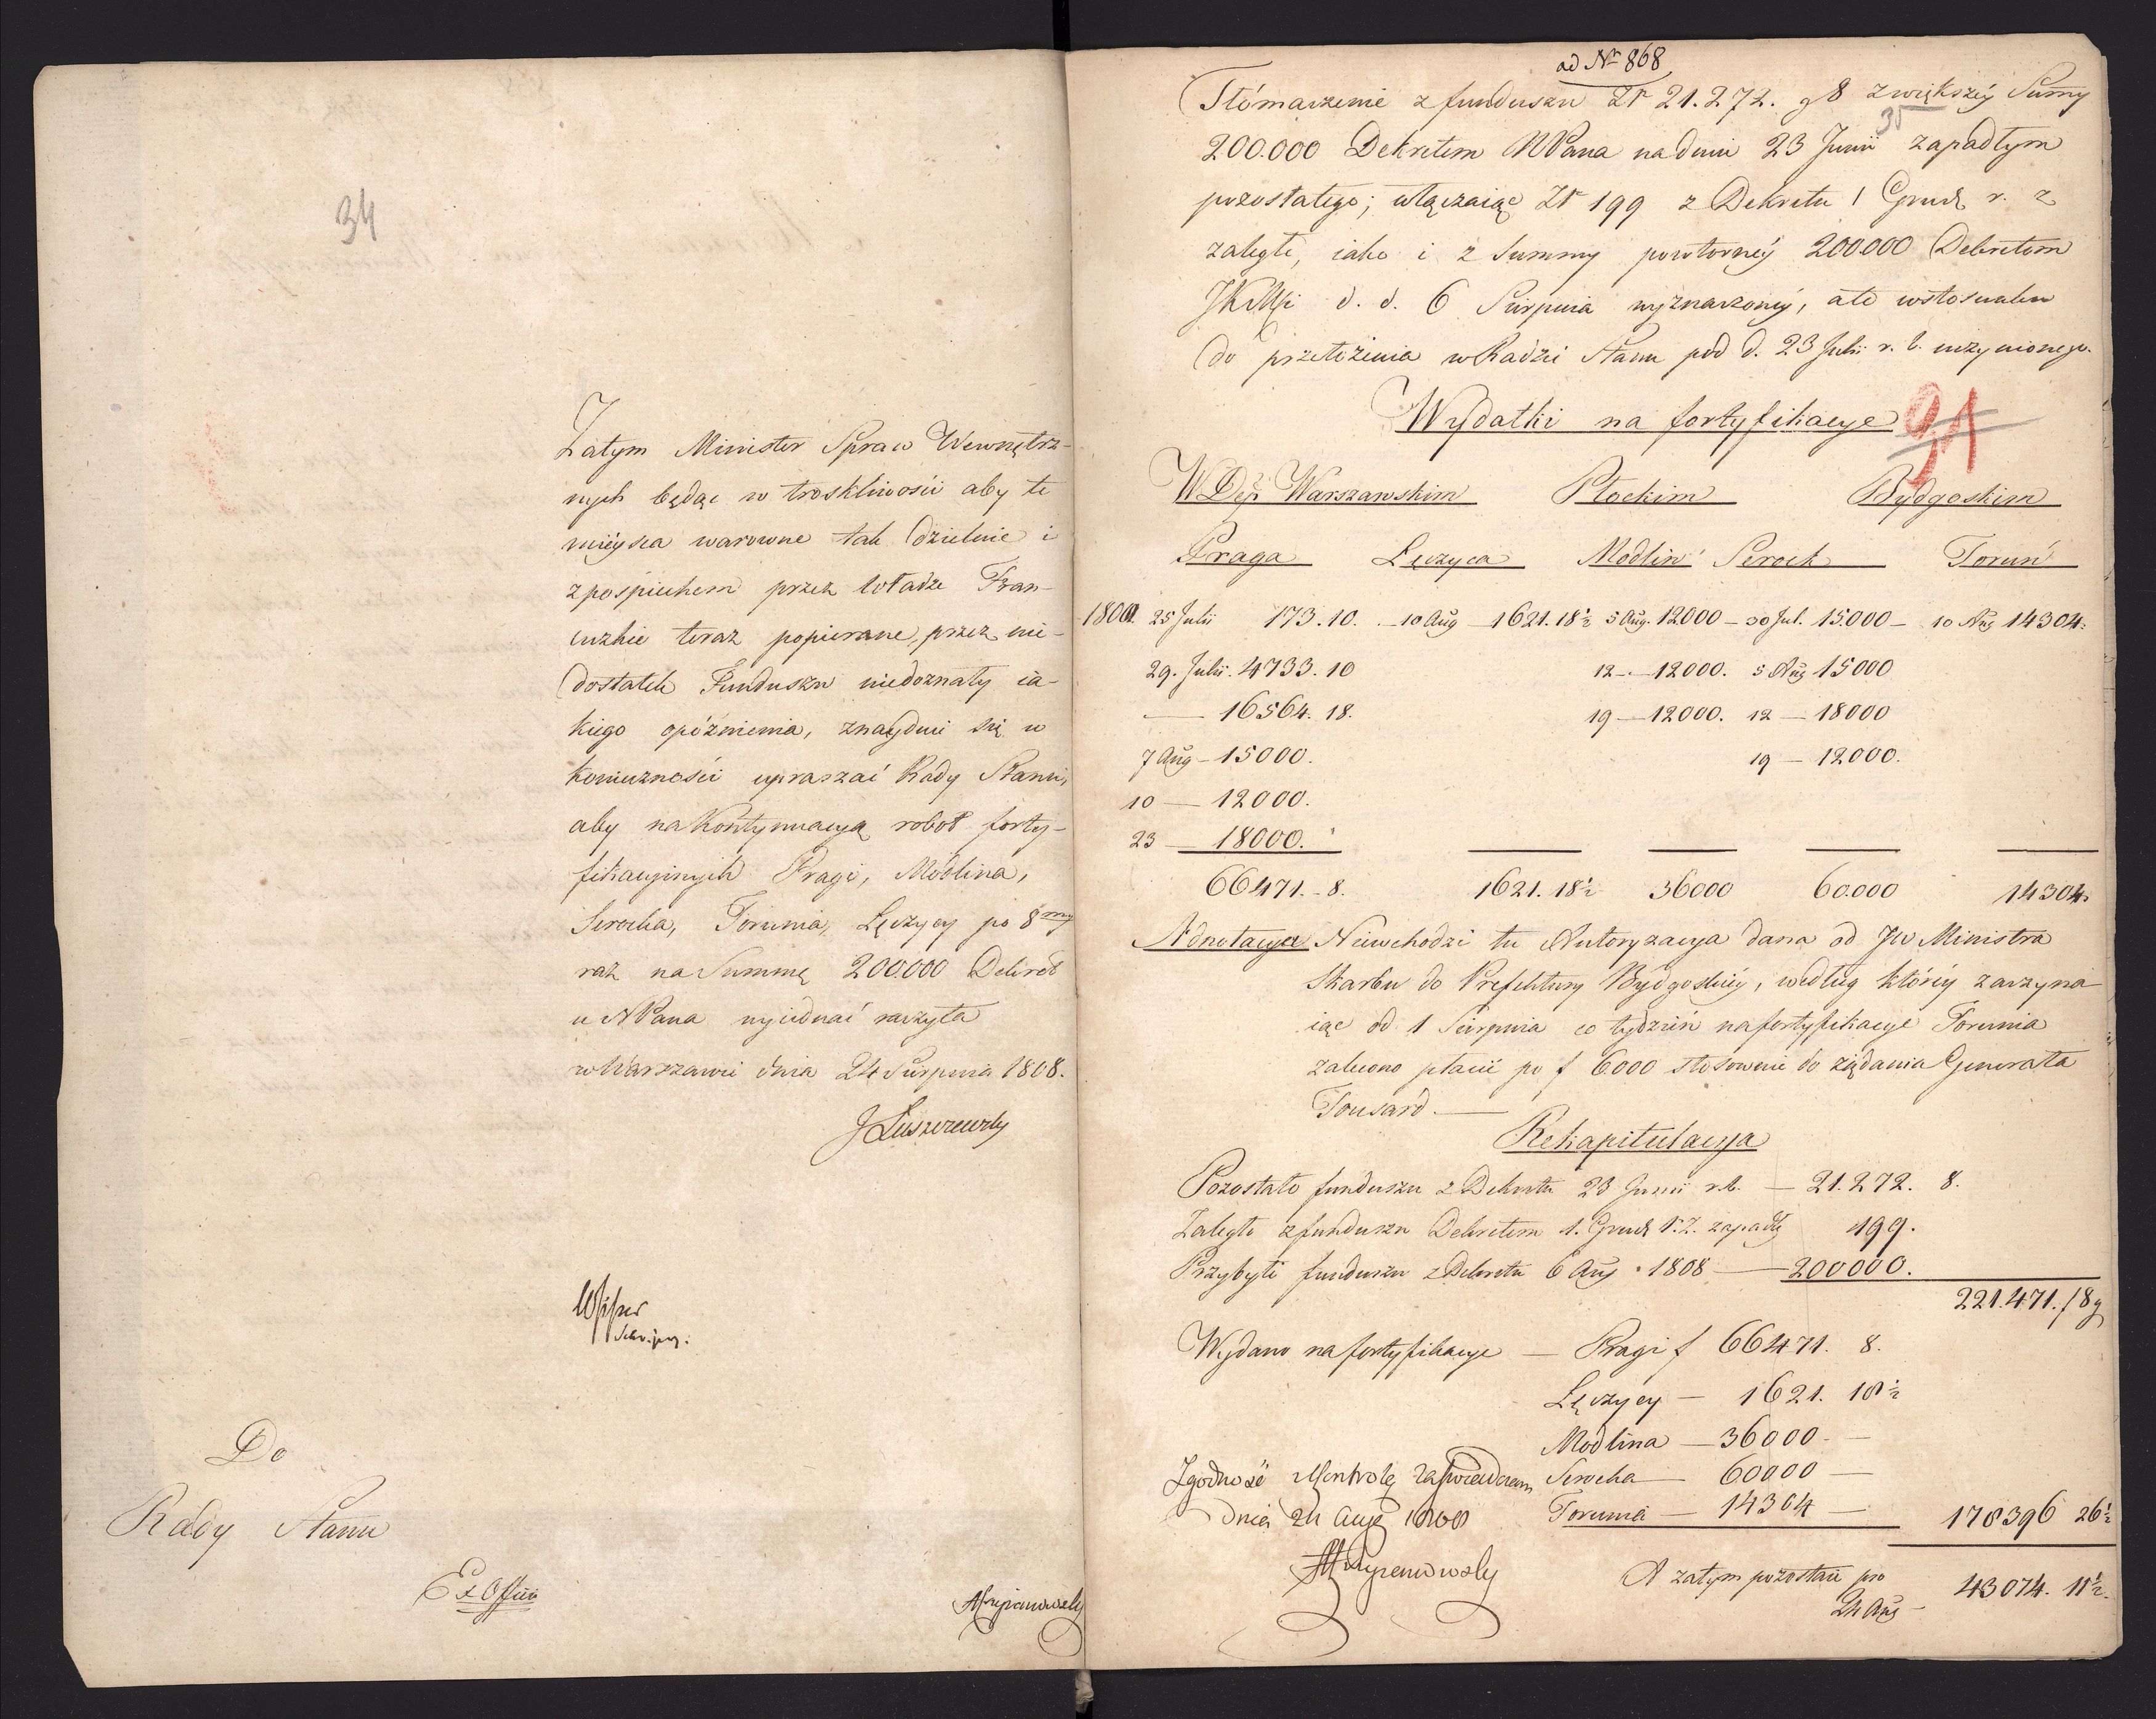 34
Zatym Minister Spraw Wewnętrz-
nych będąc w troskliwości aby te
mieysca warowne tak dzielnie i
z pośpiechem przez władze Fran-
cuzkie teraz popierane, przez nie-
dostatek Funduszu niedoznały ia-
kiego opóźnienia, znayduie się w
konieczności upraszać Rady Stanu,
aby na kontynuacyą robot forty-
fikacyinych Pragi, Modlina,
Serocka, Torunia, Łęczycy po 8my
raz na Summę 200.000 Dekret
u NPana wyiednać raczyła
w Warszawie dnia 24 Sierpnia 1808.
J Łuszczewsky
Do
Rady Stanu
Ex Officio
ad Nr 868
Tłómaczenie z funduszu Zł 21.272. g 8 z większéy Sumy
35
200.000 Dekretem NPana na dniu 23 Junii zapadłym
pozostałego; włączaiąc Zł 199 z Dekretu 1 Grud. r. z
zaległe, iako i z Summy powtornéy 200.000 Dekretem
JKMci d. d. 6 Sierpnia wyznaczonéy, ale wstosunku
do przełożenia w Radzie Stanu pod d. 23 Julii r. b. uczynionego.
Wydatki na fortyfikacye
91
W Dep. Warszawskim Płockim Bydgoskim
Praga Łęczyca Modlin Serock Toruń
1808. 25 Julii 173.10. - 10 Aug - 1621.18½ 5 Aug. 12000 - 30 Jul. 15.000 - 10 Aug 14304.
29. Julii. 4733. 10 12 - 12000. 5 Aug 15000
— 16564. 18. 19 — 12000. 12 — 18000
7 Aug - 15000. 19 — 12000.
10 — 12000.
23 — 18000.
66471 - 8. 1621. 18½ 36000 60.000 14304.
Adnotacya Niewchodzi tu Autoryzacya dana od JW Ministra
Skarbu do Prefektury Bydgoskiéy, według któréy zaczyna
iąc od 1 Sierpnia co tydzień na fortyfikacye Torunia
zalecono płacić po f 6000 stosownie do żądania Generała
Tousard. —
Rekapitulacya
Pozostało funduszu z Dekretu 23 Junii r.b. — 21.272. 8.
Zaległo z funduszu Dekretem 1. Grud r. z. zapadłe 199.
Przybyło funduszu z Dekretu 6 Aug 1808 — 200000.
221.471. /8 g
Wydano na fortyfikacye — Pragi f 66471. 8.
Łęczycy — 1621. 18½
Modlina — 36000 - —
Zgodność z Kontrolą zaświadczam Serocka — 60000 —
dnia 24 Aug 1808 Torunia — 14304 — 178396 26½
A zatym pozostaie pro
24 Aug — 43074. 11½.